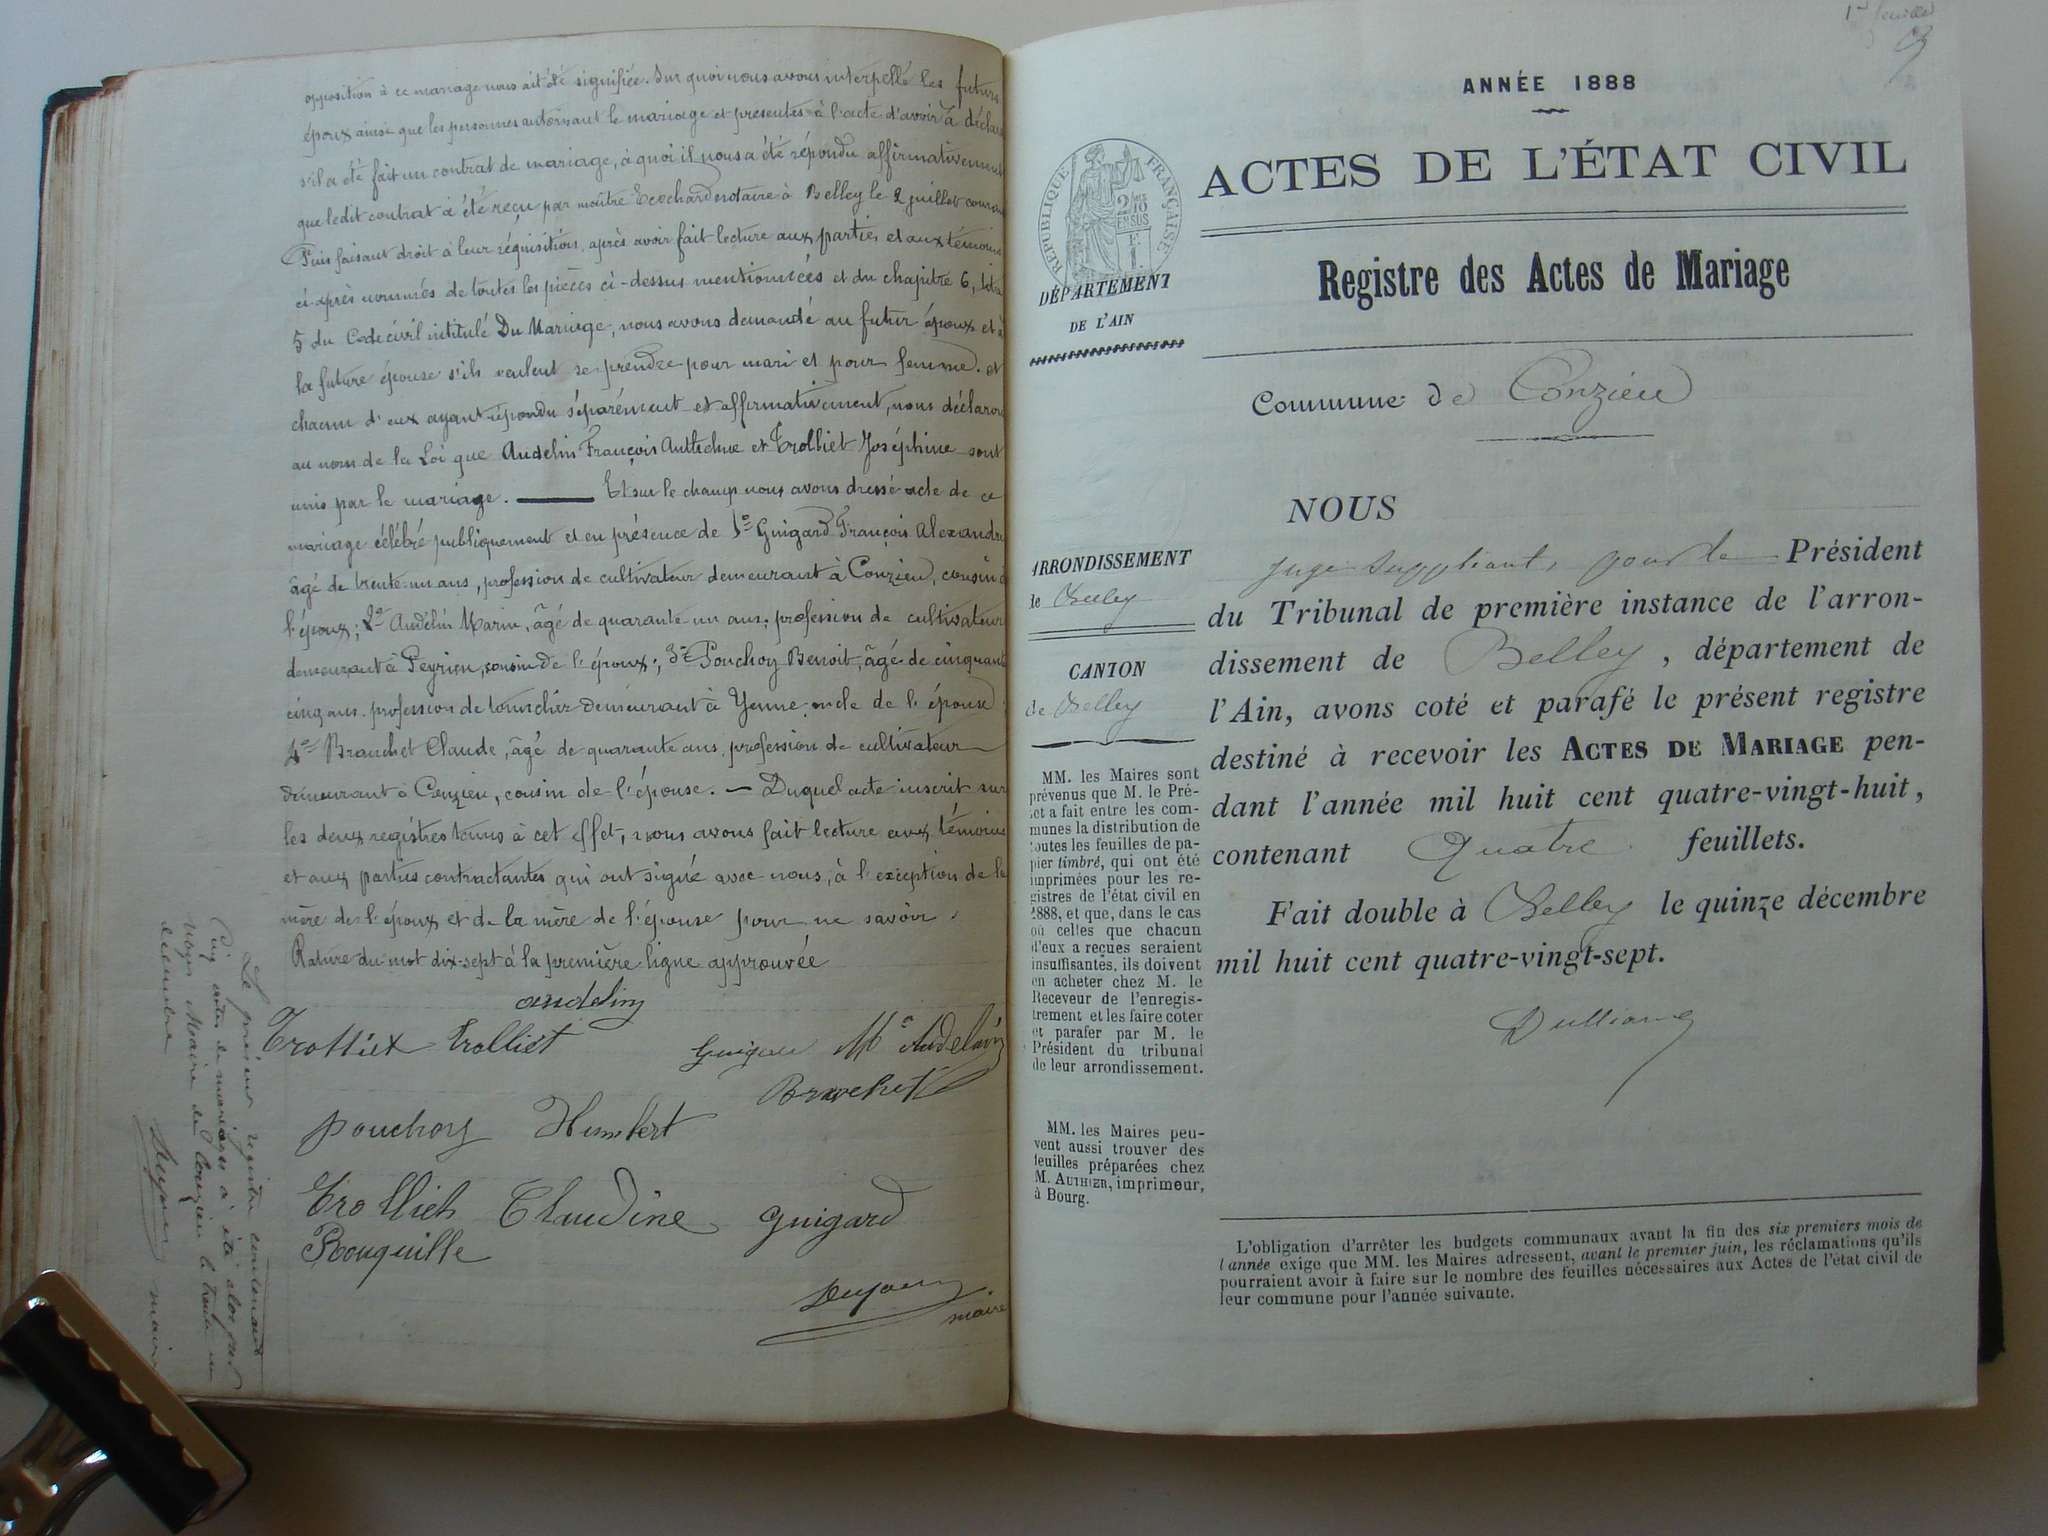 opposition à ce mariage nous ait été signifiée. Sur quoi nous avons interpellé les futurs
époux ainsi que les personnes autorisant le mariage et présentes à l'acte d'avoir à déclarer
s'il a été fait un contrat de mariage, à quoi il nous a été répondu affirmativement
que ledit contrat a été reçu par maître notaire à Belley le 2 juillet courant
Puis faisant droit à leur réquisition, après avoir fait lecture aux parties et aux témoins
ci-après nommés de toutes les pièces ci-dessus mentionnées et du chapitre 6, titre
5 du Code civil intitulé Du Mariage, nous avons demandé au futur époux et à
la future épouse s'ils veulent se prendre pour mari et pour femme. et
chacun d'eux ayant répondu séparément et affirmativement, nous déclarons
au nom de la Loi que Andelin François Anthelme et Trolliet Joséphine sont
unis par le mariage. — Et sur le champ nous avons dressé acte de ce
mariage célébré publiquement et en présence de 1º Guigard François Alexandre
âgé de trente-un ans, profession de cultivateur demeurant à Conzieu, cousin de
l'époux; 2º Andelin Marin, âgé de quarante-un ans, profession de cultivateur
demeurant à Peyrieu, cousin de l'époux; 3º Pouchoy Benoit, âgé de cinquante
cinq ans. profession de demeurant à Yenne, oncle de l'épouse
4º Brauchet Claude, âgé de quarante ans, profession de cultivateur
demeurant à Conzieu, cousin de l'épouse. — Duquel acte inscrit sur
les deux registres tenus à cet effet, nous avons fait lecture aux témoins
et aux parties contractantes qui ont signé avec nous, à l'exception de la
mère de l'époux et de la mère de l'épouse pour ne savoir.
Rature du mot dix-sept à la première ligne approuvée
andelin
Trolliet Trolliet Guigard Mⁿ Andelin
Brauchet
pouchoy Humbert
Trolliet Claudine guigard
Rouquille
maire
Le présent registre contenant
Cinq actes de mariages a été clos par
nous Maire de Conzieu le trente un
décembre
maire
1er feuillet
ANNÉE 1888
ACTES DE L'ÉTAT CIVIL
RÉPUBLIQUE FRANÇAISE
2/10 EN SUS
Registre des Actes de Mariage
DÉPARTEMENT
DE L'AIN
Commune de Conzieu
NOUS
Juge Suppléant, pour le Président
du Tribunal de première instance de l'arron-
dissement de Belley, département de
l'Ain, avons coté et parafé le présent registre
destiné à recevoir les ACTES DE MARIAGE pen-
dant l'année mil huit cent quatre-vingt-huit,
contenant Quatre feuillets.
Fait double à Belley le quinze décembre
mil huit cent quatre-vingt-sept.
ARRONDISSEMENT
de Belley
CANTON
de Belley
MM. les Maires sont
prévenus que M. le Pré-
fet a fait entre les com-
munes la distribution de
toutes les feuilles de pa-
pier timbré, qui ont été
imprimées pour les re-
gistres de l'état civil en
1888, et que, dans le cas
où celles que chacun
d'eux a reçues seraient
insuffisantes, ils doivent
en acheter chez M. le
Receveur de l'enregis-
trement et les faire coter
et parafer par M. le
Président du tribunal
de leur arrondissement.
MM. les Maires peu-
vent aussi trouver des
feuilles préparées chez
M. AUTHIER, imprimeur,
à Bourg.
L'obligation d'arrêter les budgets communaux avant la fin des six premiers mois de
l'année exige que MM. les Maires adressent, avant le premier juin, les réclamations qu'ils
pourraient avoir à faire sur le nombre des feuilles nécessaires aux Actes de l'état civil de
leur commune pour l'année suivante.